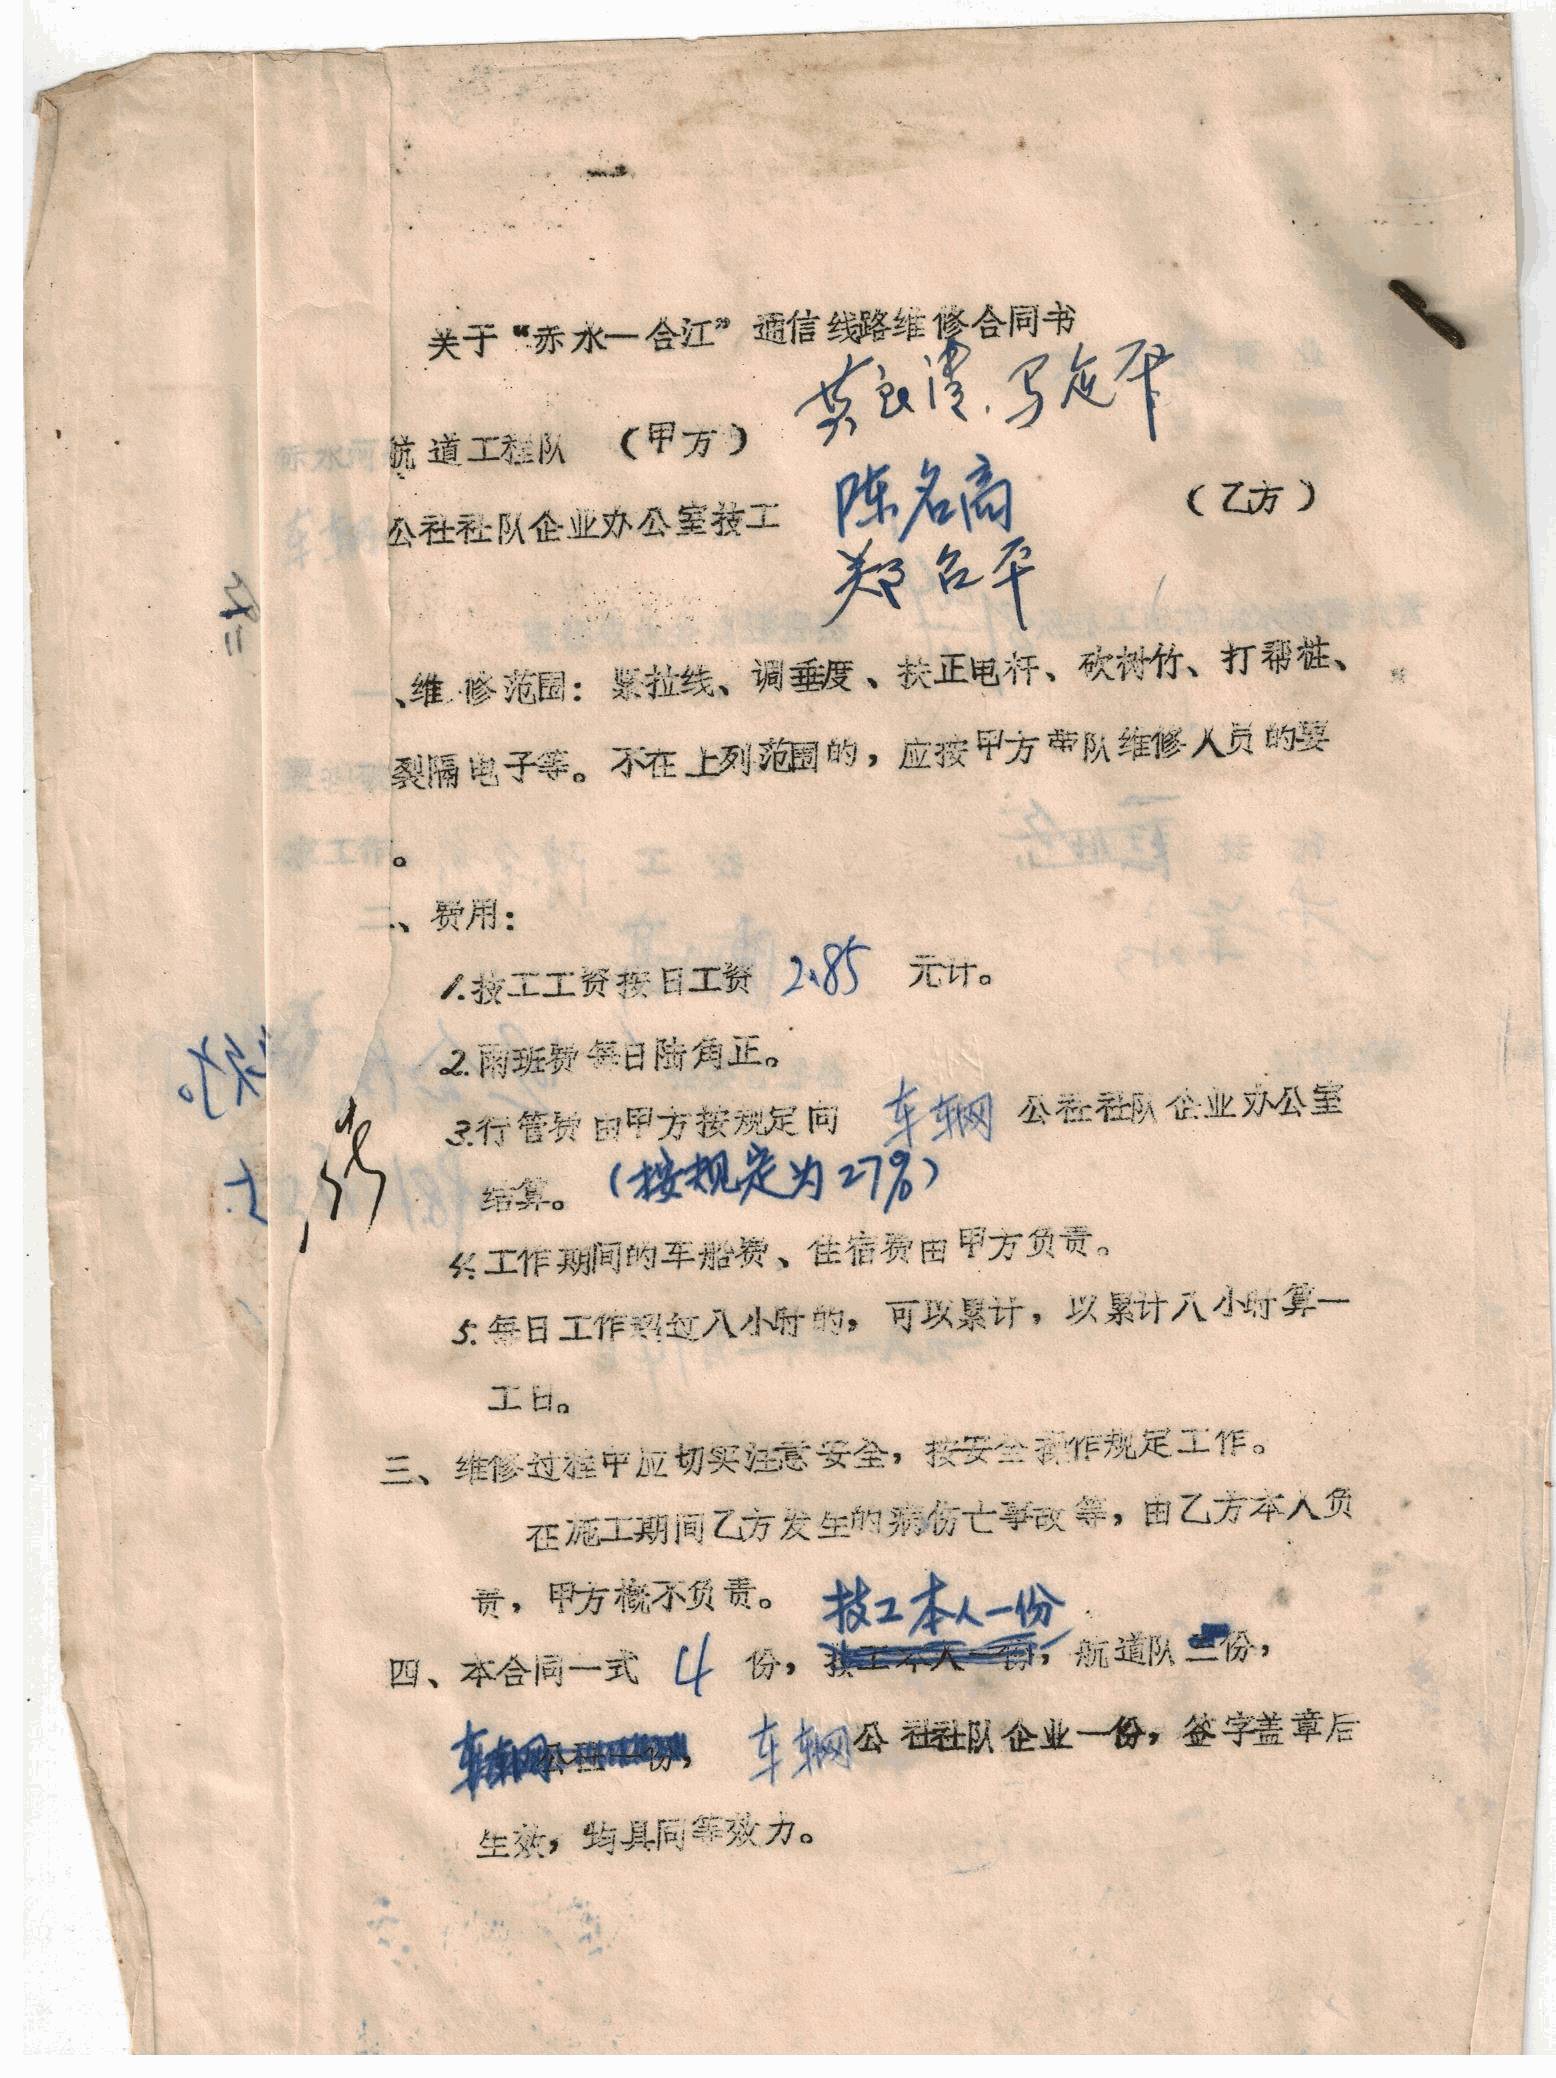 关于“赤水—合江”通信线路维修合同书
赤水河航道工程队 （甲方） 莫良清、马定平
公社社队企业办公室技工 陈名高 （乙方）
郑召平
一、维修范围：紧拉线、调垂度、扶正电杆、砍树竹、打帮桩、
裂隔电子等。不在上列范围的，应按甲方带队维修人员的要
工作。
二、费用：
1.技工工资按日工资 2.85 元计。
2.雨班费每日陆角正。
3.行管费由甲方按规定向 车辋 公社社队企业办公室
结算。（按规定为27%）
4.工作期间的车船费、住宿费由甲方负责。
5.每日工作超过八小时的，可以累计，以累计八小时算一
工日。
三、维修过程中应切实注意安全，按安全操作规定工作。
在施工期间乙方发生的病伤亡事故等，由乙方本人负
责，甲方概不负责。 技工本人一份
四、本合同一式 4 份，技工本人一份，航道队二份，
车辋公社一份， 车辋公社社队企业一份，签字盖章后
生效，均具同等效力。